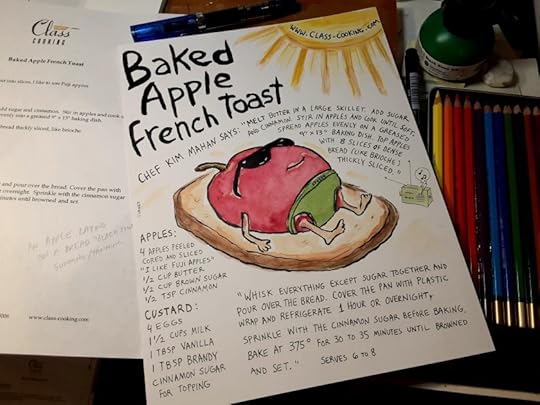 Class
COOKING
Baked Apple French Toast
into slices, I like to use Fuji apples
sugar and cinnamon. Stir in apples and cook
evenly into a greased 9" x 13" baking dish.
bread thickly sliced, like brioche
and pour over the bread. Cover the pan with
overnight. Sprinkle with the cinnamon sugar
minutes until browned and set.
AN APPLE LAYING
ON A BREAD
www.class-cooking.com
WWW.CLASS-COOKING.COM
Baked
Apple
French Toast
CHEF KIM MAHAN SAYS: "MELT BUTTER IN A LARGE SKILLET. ADD SUGAR
AND CINNAMON STIR IN APPLES AND COOK UNTIL SOFT.
SPREAD APPLES EVENLY ON A GREASED
9" x 13" BAKING DISH. TOP APPLES
WITH 8 SLICES OF DENSE
BREAD (LIKE BRIOCHE)
THICKLY SLICED."
APPLES:
4 APPLES PEELED
CORED AND SLICED
"I LIKE FUJI APPLES"
1/2 CUP BUTTER
1/2 CUP BROWN SUGAR
1/2 TSP CINNAMON
CUSTARD:
4 EGGS
1 1/2 CUPS MILK
1 TBSP VANILLA
1 TBSP BRANDY
CINNAMON SUGAR
FOR TOPPING
"WHISK EVERYTHING EXCEPT SUGAR TOGETHER AND
POUR OVER THE BREAD. COVER THE PAN WITH PLASTIC
WRAP AND REFRIGERATE 1 HOUR OR OVERNIGHT,
SPRINKLE WITH THE CINNAMON SUGAR BEFORE BAKING.
BAKE AT 375° FOR 30 TO 35 MINUTES UNTIL BROWNED
AND SET."
SERVES 6 TO 8